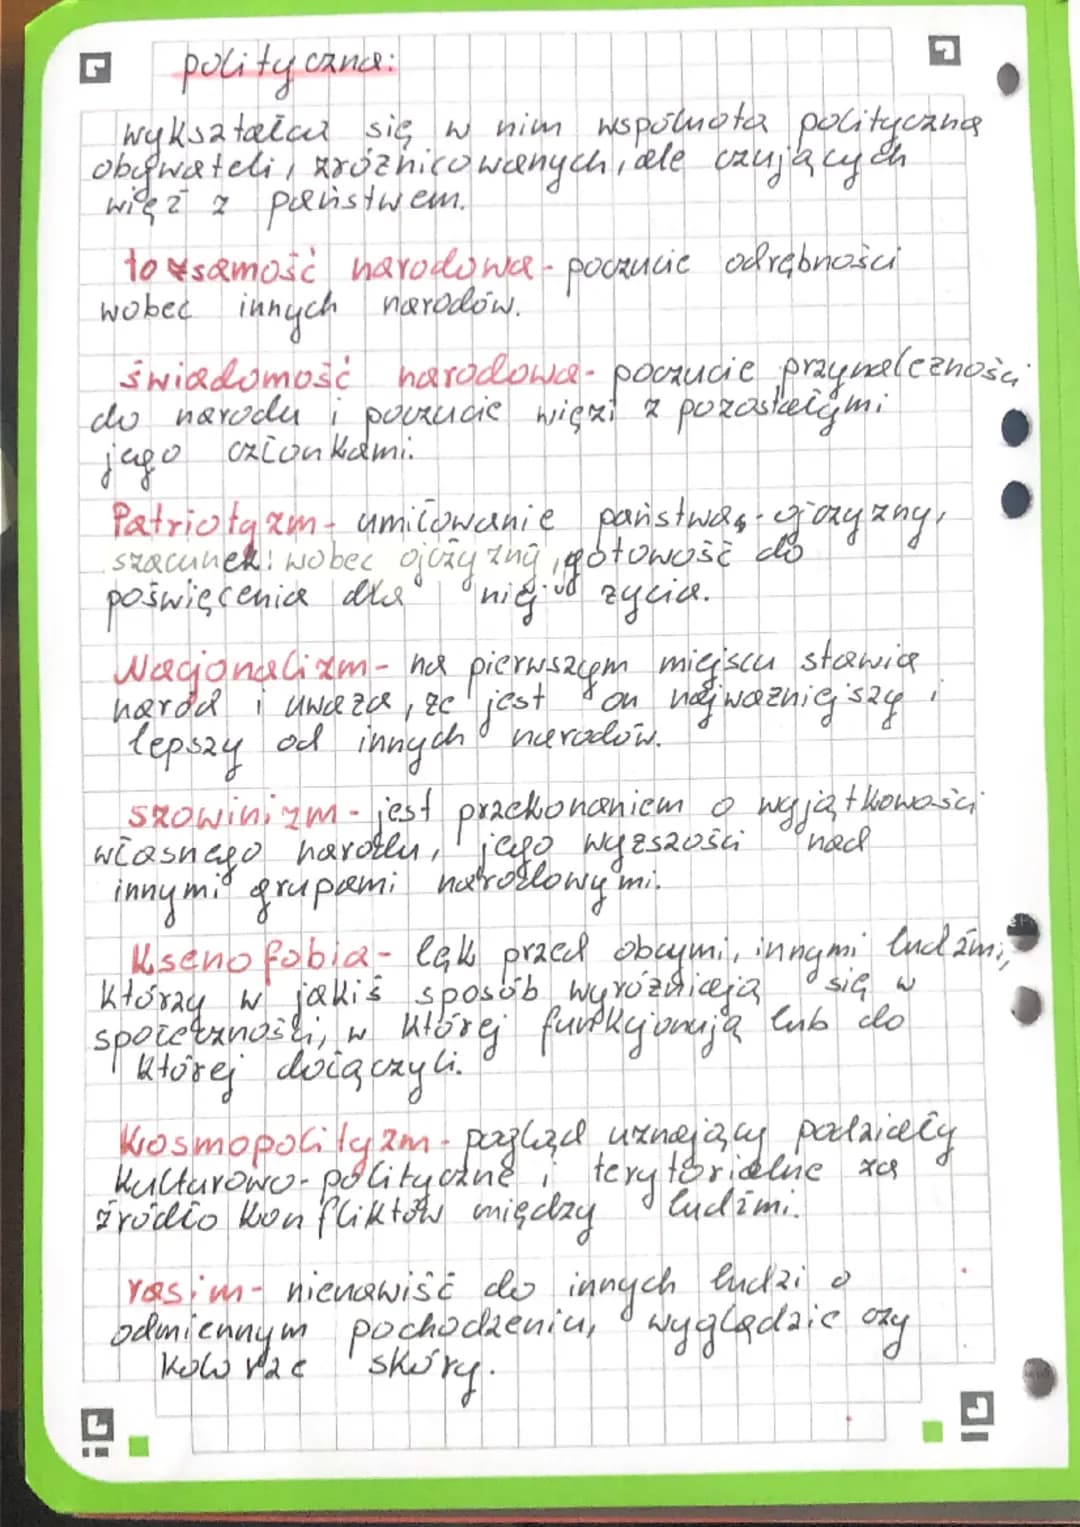 polityczna:
wykształca się w nim wspólnota polityczna
obywateli, zróżnicowanych, ale czujących
więź z państwem.
tożsamość narodowa - poczucie odrębności
wobec innych narodów.
świadomość narodowa - poczucie przynależności
do narodu i poczucie więzi z pozostałymi
jego członkami.
Patriotyzm - umiłowanie państwa, ojczyzny,
szacunek wobec ojczyzny, gotowość do
poświęcenia dla niej życia.
Nacjonalizm - na pierwszym miejscu stawia
naród i uważa, że jest on najważniejszy i
lepszy od innych narodów.
szowinizm - jest przekonaniem o wyjątkowości
własnego narodu, jego wyższości nad
innymi grupami narodowymi.
Ksenofobia - lęk przed obcymi, innymi ludźmi,
którzy w jakiś sposób wyróżniają się w
społeczności, w której funkcjonują lub do
której dołączyli.
Kosmopolityzm - pogląd uznający podziały
kulturowo-polityczne i terytorialne za
źródło konfliktów między ludźmi.
rasizm - nienawiść do innych ludzi o
odmiennym pochodzeniu, wyglądzie czy
kolorze skóry.